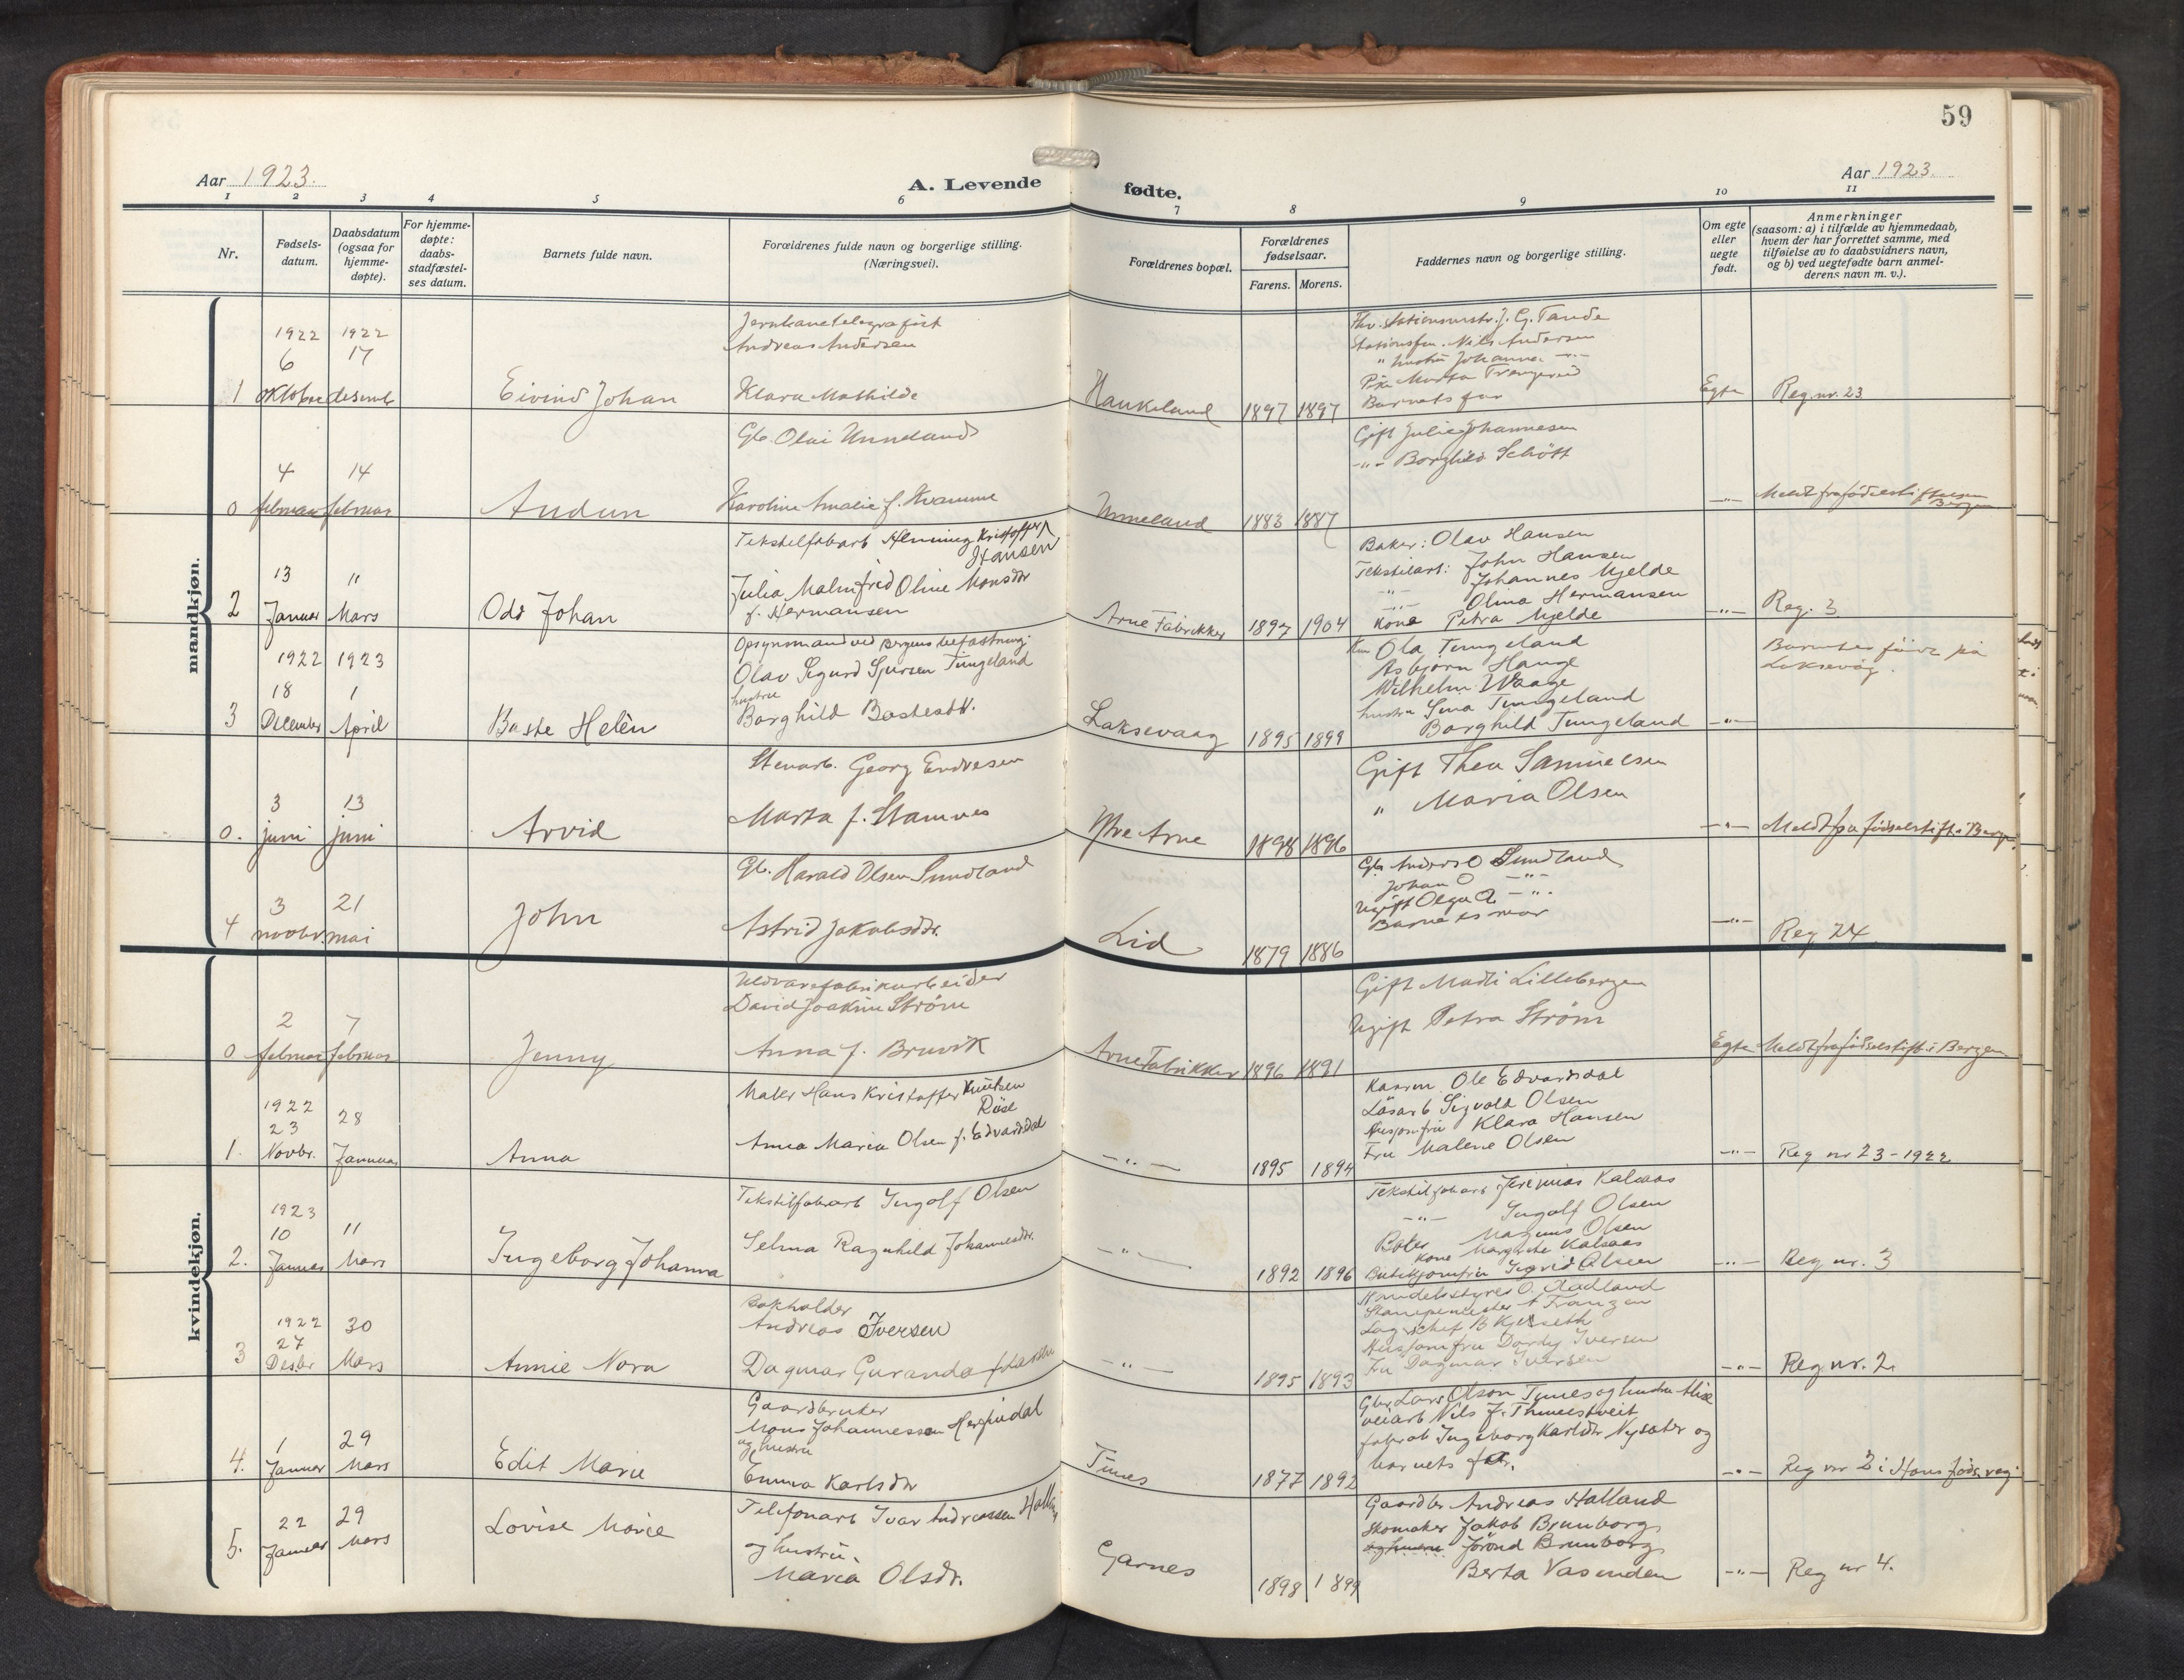 59
Aar 1923.
A. Levende
fødte.
Aar 1923.
1 2 3 4 5 6 7 8 9 10 11
Nr.
Fødsels-
datum.
Daabsdatum
(ogsaa for
hjemme-
døpte).
For hjemme-
døpte:
daabs-
stadfæstel-
ses datum.
Barnets fulde navn.
Forældrenes fulde navn og borgerlige stilling.
(Næringsvei).
Forældrenes bopæl.
Forældrenes
fødselsaar.
Farens. Morens.
Faddernes navn og borgerlige stilling.
Om egte
eller
uegte
født.
Anmerkninger
(saasom: a) i tilfælde av hjemmedaab,
hvem der har forrettet samme, med
tilføielse av to daabsvidners navn,
og b) ved uegtefødte barn anmel-
derens navn m. v.).
mandkjøn.
1
1922
6
oktober
1922
17
desember
Eivind Johan
Jernbanetelegrafist
Andreas Andersen
Klara Mathilde
Haukeland
1897 1897
Stationsmstr. J. G. Tande
Stationsfm. Nils Andersen
" hustru Johanna -"-
Pike Marta
Barnets far
Egte
Reg. nr. 23
0
4
februar
14
februar
Audun
Gb. Olai Unneland
Karoline Amalie f. Kvamme
Unneland
1883 1887
Gift Julie Johannesen
-"- Borghild Schøtt
-"-
Meldt fra fødselsstiftelsen
Bergen
2
13
Januar
11
Mars
Odd Johan
Tekstilfabarb Henning Kristoffer
Hansen
Julia Malmfrid Oline Monsdtr
f. Hermansen
Arne Fabrikker
1897 1904
Baker: Olav Hansen
Tekstilarb: John Hansen
-"- Johannes Mjelde
-"- Olina Hermansen
Kone Petra Mjelde
-"-
Reg. 3
3
1922
18
December
1923
1
April
Baste Helèn
Opsynsmand ved Bergens befæstning:
Olav Sigurd Sjursen Tungeland
hustru
Borghild Bastesdtr.
Laksevaag
1895 1899
Ola Tungeland
Asbjørn Hauge
Wilhelm Waage
hustru Sina Tungeland
Borghild Tungeland
-"-
Barnet er født på
Laksevåg.
0.
3
juni
13
juni
Arvid
Stenarb. Georg Endresen
Marta f. Stamnes
Ytre Arne
1898 1896
Gift Thea Samuelsen
" Maria Olsen
-"-
Meldt fra fødselsstift. i Bergen
4
3
novbr.
21
mai
John
Gb. Harald Olsen Sundland
Astrid Jakobsdtr.
Lid
1879 1886
Gb. Anders O Sundland
Johan O -"-
Ugift Olga O. -"-
Barnets mor
-"-
Reg 24
kvindekjøn.
0
2
februar
7
februar
Jenny
Uldvarefabrikarbeider
David Joakim Strøm
Anna f. Bruvik
Arne Fabrikker
1896 1891
Gift Marli Lillebergen
Ugift Petra Strøm
Egte
Meldt fra fødselsstift. i Bergen
1.
1922
23
Novbr.
28
Januar
Anna
Maler Hans Kristoffer Knutsen
Anna Maria Olsen f. Edvardsdal
-"-
1895 1894
Ole Edvardsdal
Løsarb Sigvald Olsen
Husjomfru Klara Hansen
Fru Malene Olsen
-"-
Reg nr 23-1922
2.
1923
10
Januar
11
Mars
Ingeborg Johanna
Tekstilfabarb Ingolf Olsen
Selma Ragnhild Johannesdtr.
-"-
1892 1896
Tekstilfabarb Jeremias Kalsaas
-"- Ingolf Olsen
Magnus Olsen
Kone Margrete Kalsaas
Butikjomfru Sigrid Olsen
-"-
Reg nr. 3
3
1922
27
Desbr
30
Mars
Annie Nora
Bokholder
Andreas Iversen
Dagmar Guranda
-"-
1895 1893
O. Aadland
Franzen
Lagerchef B
Husjomfru Dordy Iversen
Fru Dagmar Iversen
-"-
Reg. nr. 2.
4.
1
Januar
29
Mars
Edit Marie
Gaardbruker
Mons Johannessen Herfindal
og hustru
Emma Karlsdtr
Tunes
1877 1892
Gbr Lars Olson Tunes og hustru
veiarb Nils J.
fabrab Ingeborg Karlsdtr Nysæter og
barnets far.
-"-
Reg nr 2 i Haus føds. reg.
5.
22
Januar
29
Mars
Lovise Marie
Telefonarb Ivar Andreassen
og hustru
Maria Olsdr.
Garnes
1898 1899
Gaardbr Andreas Halland
Skomaker Jakob Brunborg
og hustru Jørond Brunborg
Berta Vasenden
-"-
Reg nr 4.